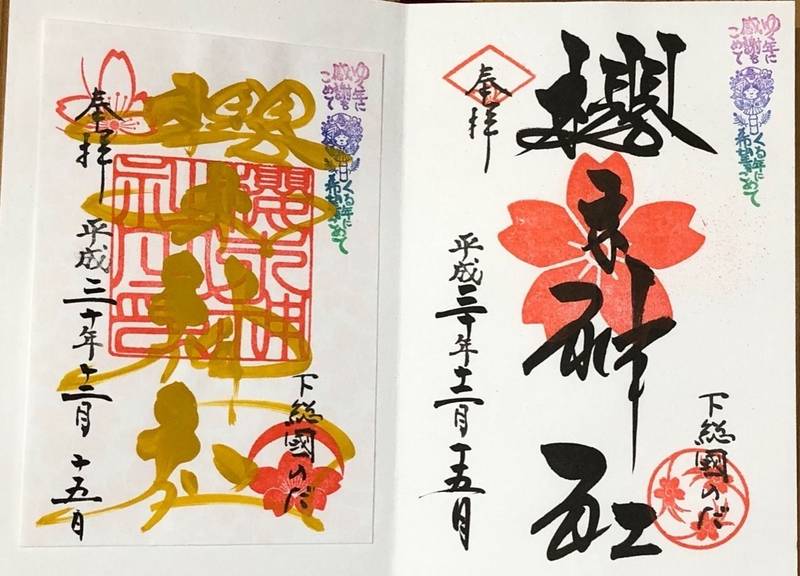 ゆく年に
感謝を
こめて
くる年に
希望をこめて
櫻木神社
下総國のだ
奉拝
平成三十年十二月十五日
ゆく年に
感謝を
こめて
くる年に
希望をこめて
櫻木神社
下総國のだ
奉拝
平成三十年十二月十五日